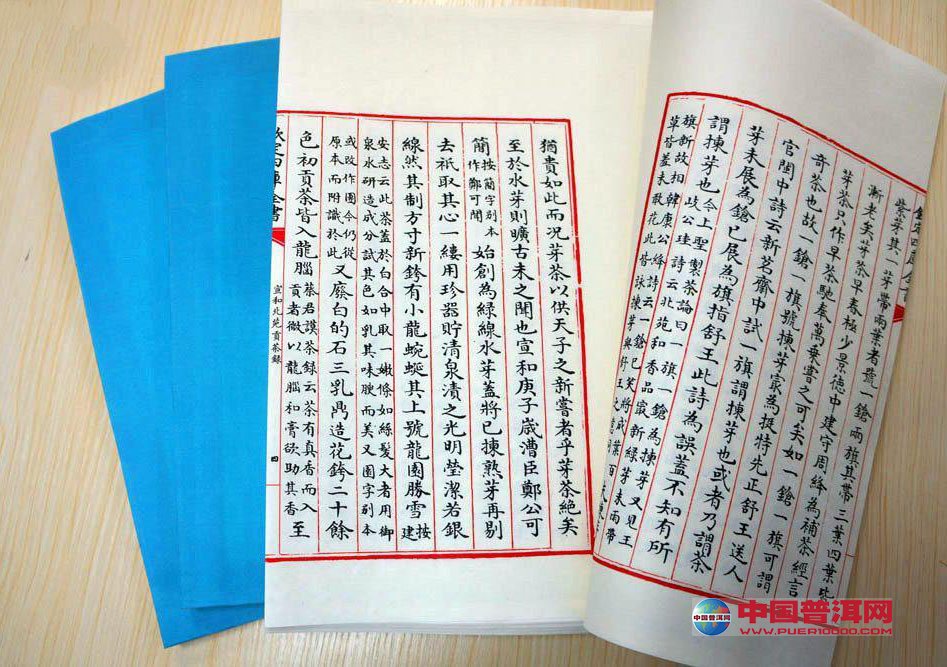 紫芽其一芽帶兩葉者號一鎗兩旗其帶三葉四葉皆
漸老矣芽茶早春極少景德中建守周絳為補茶經言
芽茶只作早茶馳奉萬乗嘗之可矣如一鎗一旗可謂
奇茶也故一鎗一旗號揀芽最為挺特先正舒王送人
官閩中詩云新茗齋中試一旗謂揀芽也或者乃謂茶
芽未展為鎗已展為旗指舒王此詩為誤蓋不知有所
謂揀芽也今上聖製茶論曰一旗一鎗為揀芽又見王
岐公珪詩云北苑和香品最新綠芽未雨帶
旗新故相韓康公絳詩云一鎗已笑將成葉百
草皆羞未敢花此皆詠揀芽與舒王
猶貴如此而況芽茶以供天子之新嘗者乎芽茶絶矣
至於水芽則曠古未之聞也宣和庚子歲漕臣鄭公可
簡按簡字别本
作鄭可聞始創為緑線水芽蓋將已揀熟芽再剔
去祇取其心一縷用珍器貯清泉漬之光明瑩潔若銀
線然其制方寸新銙有小龍蜿蜒其上號龍園勝雪按建
安志云此茶蓋於白合中取一嫩條如絲髮大者用御
泉水研造成分試其色如乳其味腴而美又園字别本
或改作團令仍從
原本而附識於此又廢白的石三乳鼎造花銙二十餘
色初貢茶皆入龍腦蔡君謨茶録云茶有真香而入
貢者微以龍腦和膏欲助其香至
欽定四庫全書
宣和北苑貢茶錄
四
中国普洱网
中国普洱网
WWW.PUER10000.COM